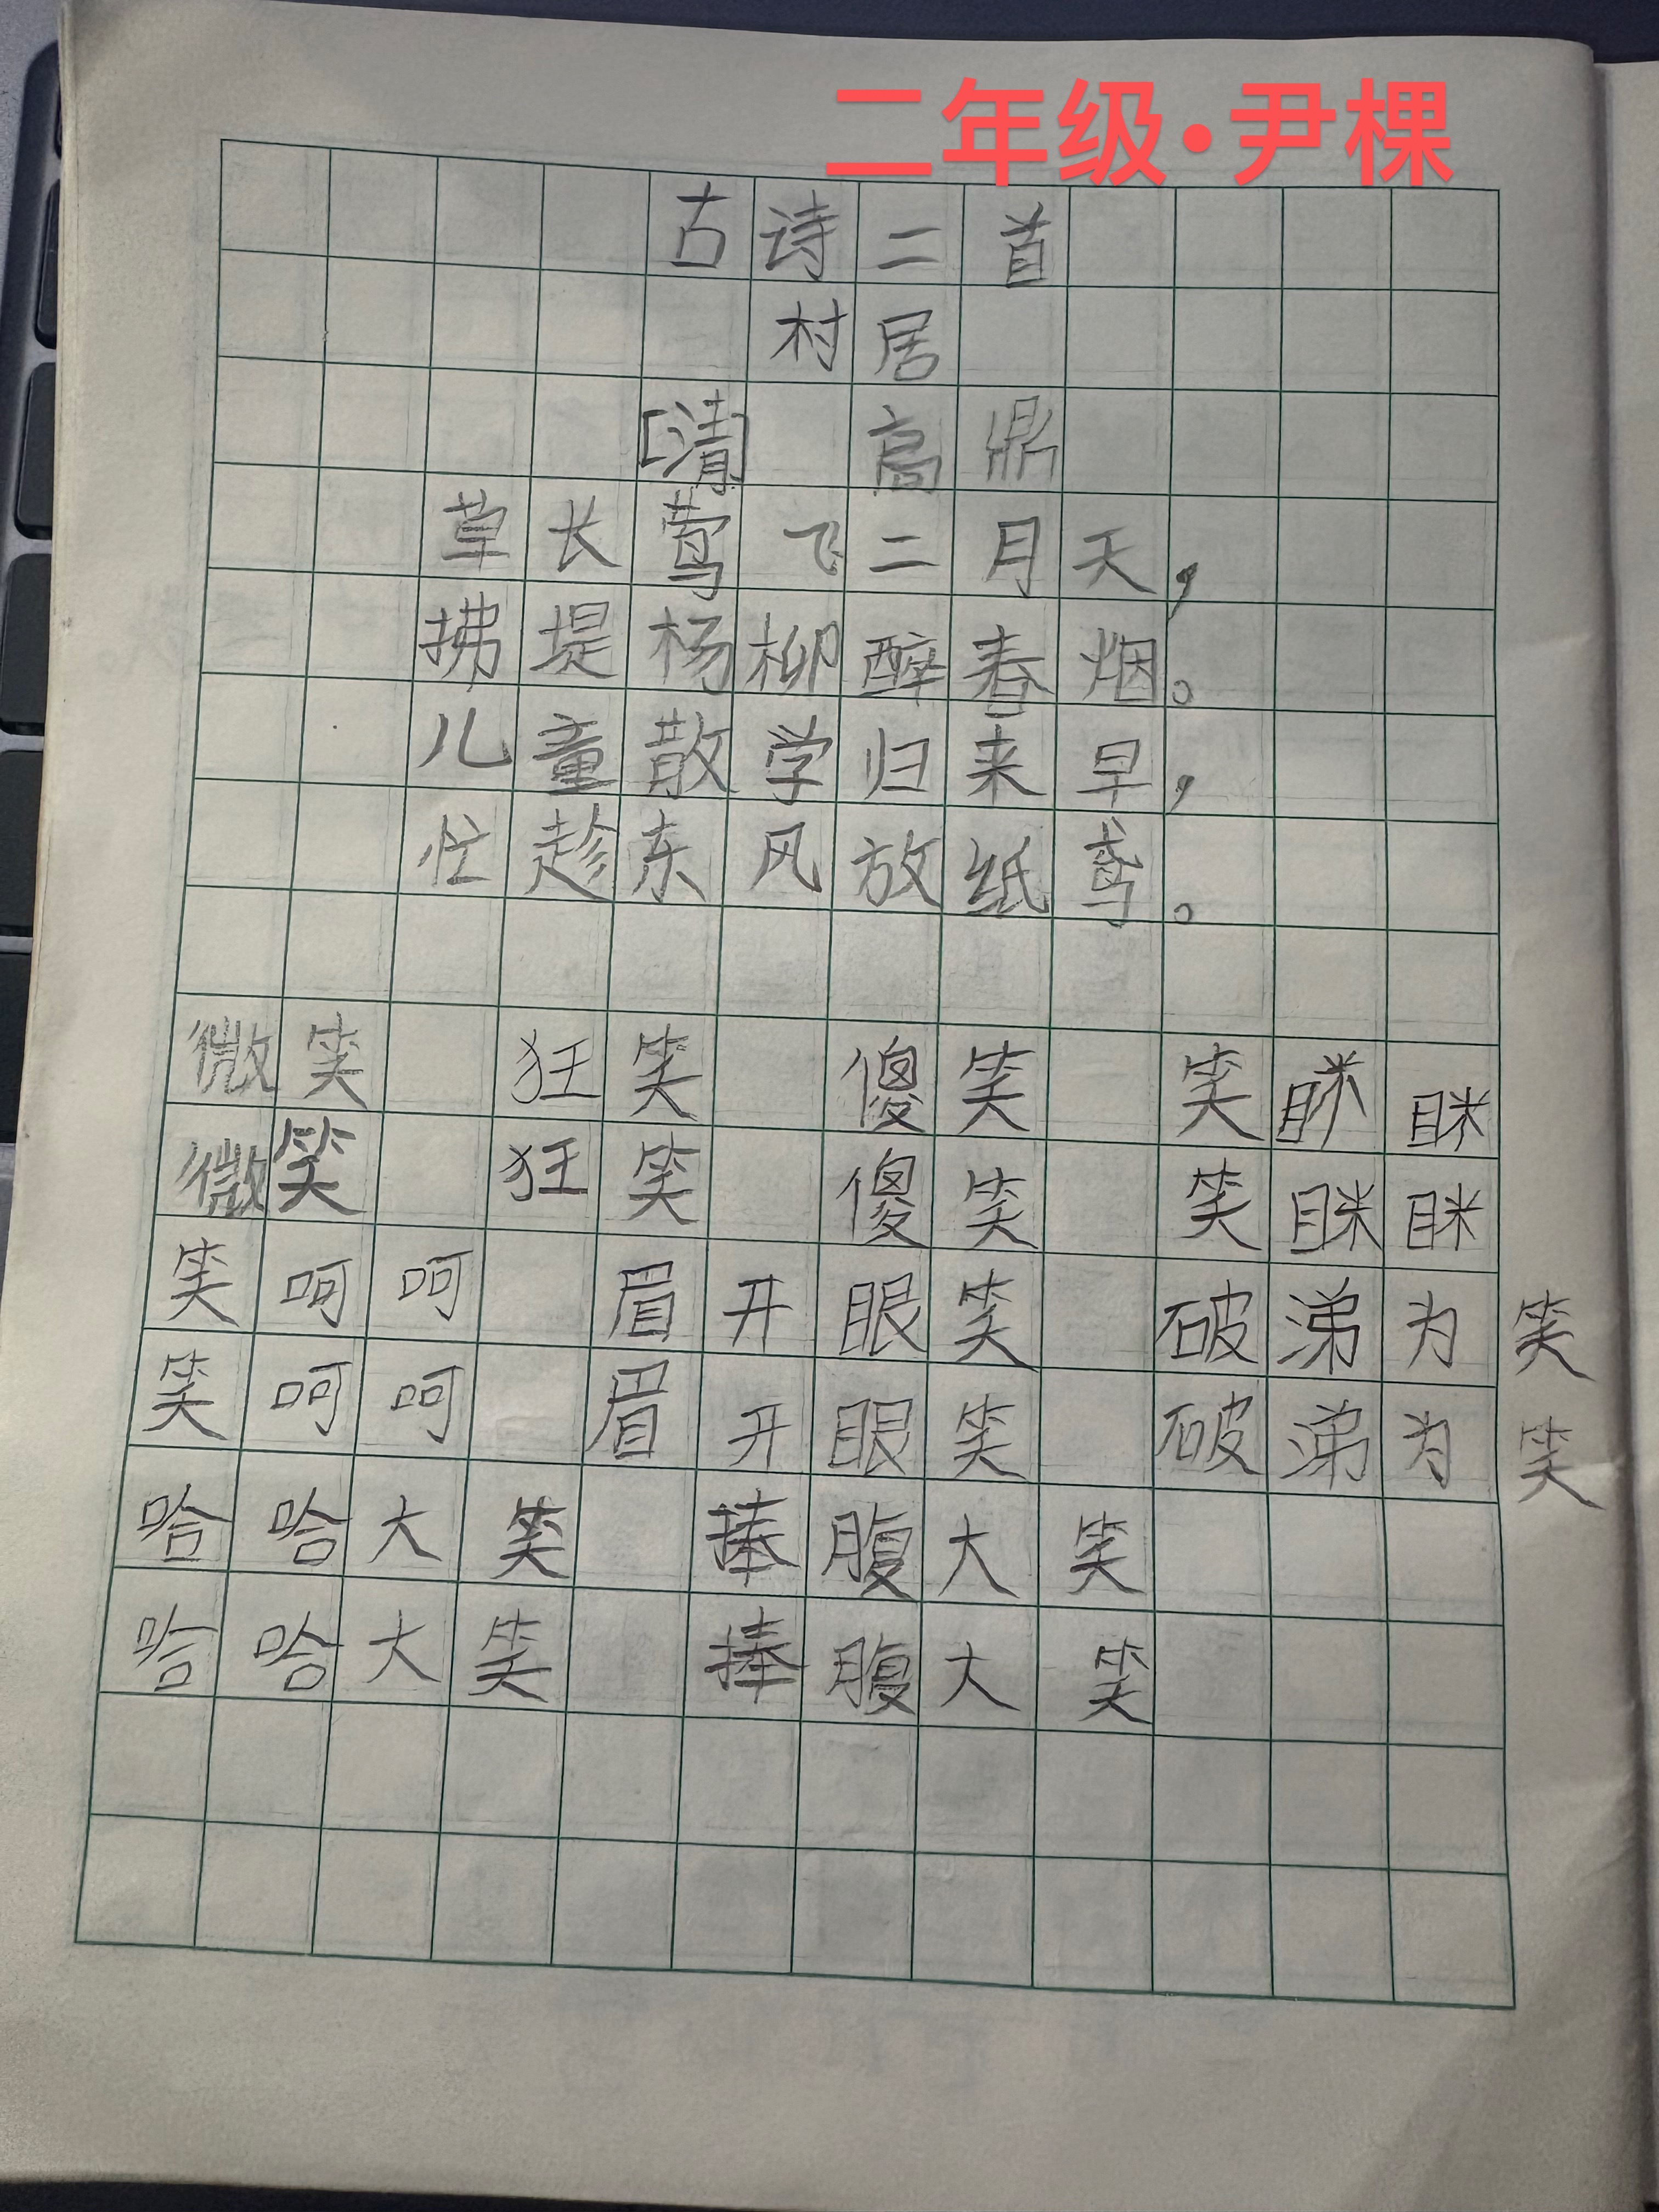 二年级·尹棵
古诗二首
村居
[清] 高鼎
草长莺飞二月天，
拂堤杨柳醉春烟。
儿童散学归来早，
忙趁东风放纸鸢。
微笑 狂笑 傻笑 笑眯眯
微笑 狂笑 傻笑 笑眯眯
笑呵呵 眉开眼笑 破涕为笑
笑呵呵 眉开眼笑 破涕为笑
哈哈大笑 捧腹大笑
哈哈大笑 捧腹大笑